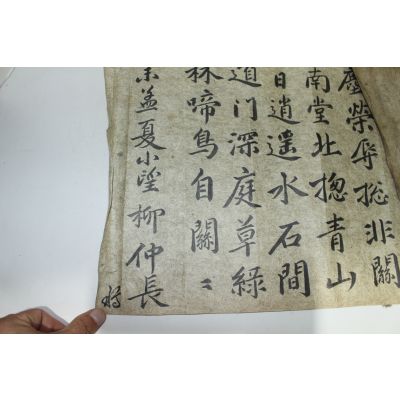 塵榮辱揔非關
南堂北揔青山
日逍遥水石間
道门深庭草綠
林啼鳥自關〻
孟夏小望柳仲長